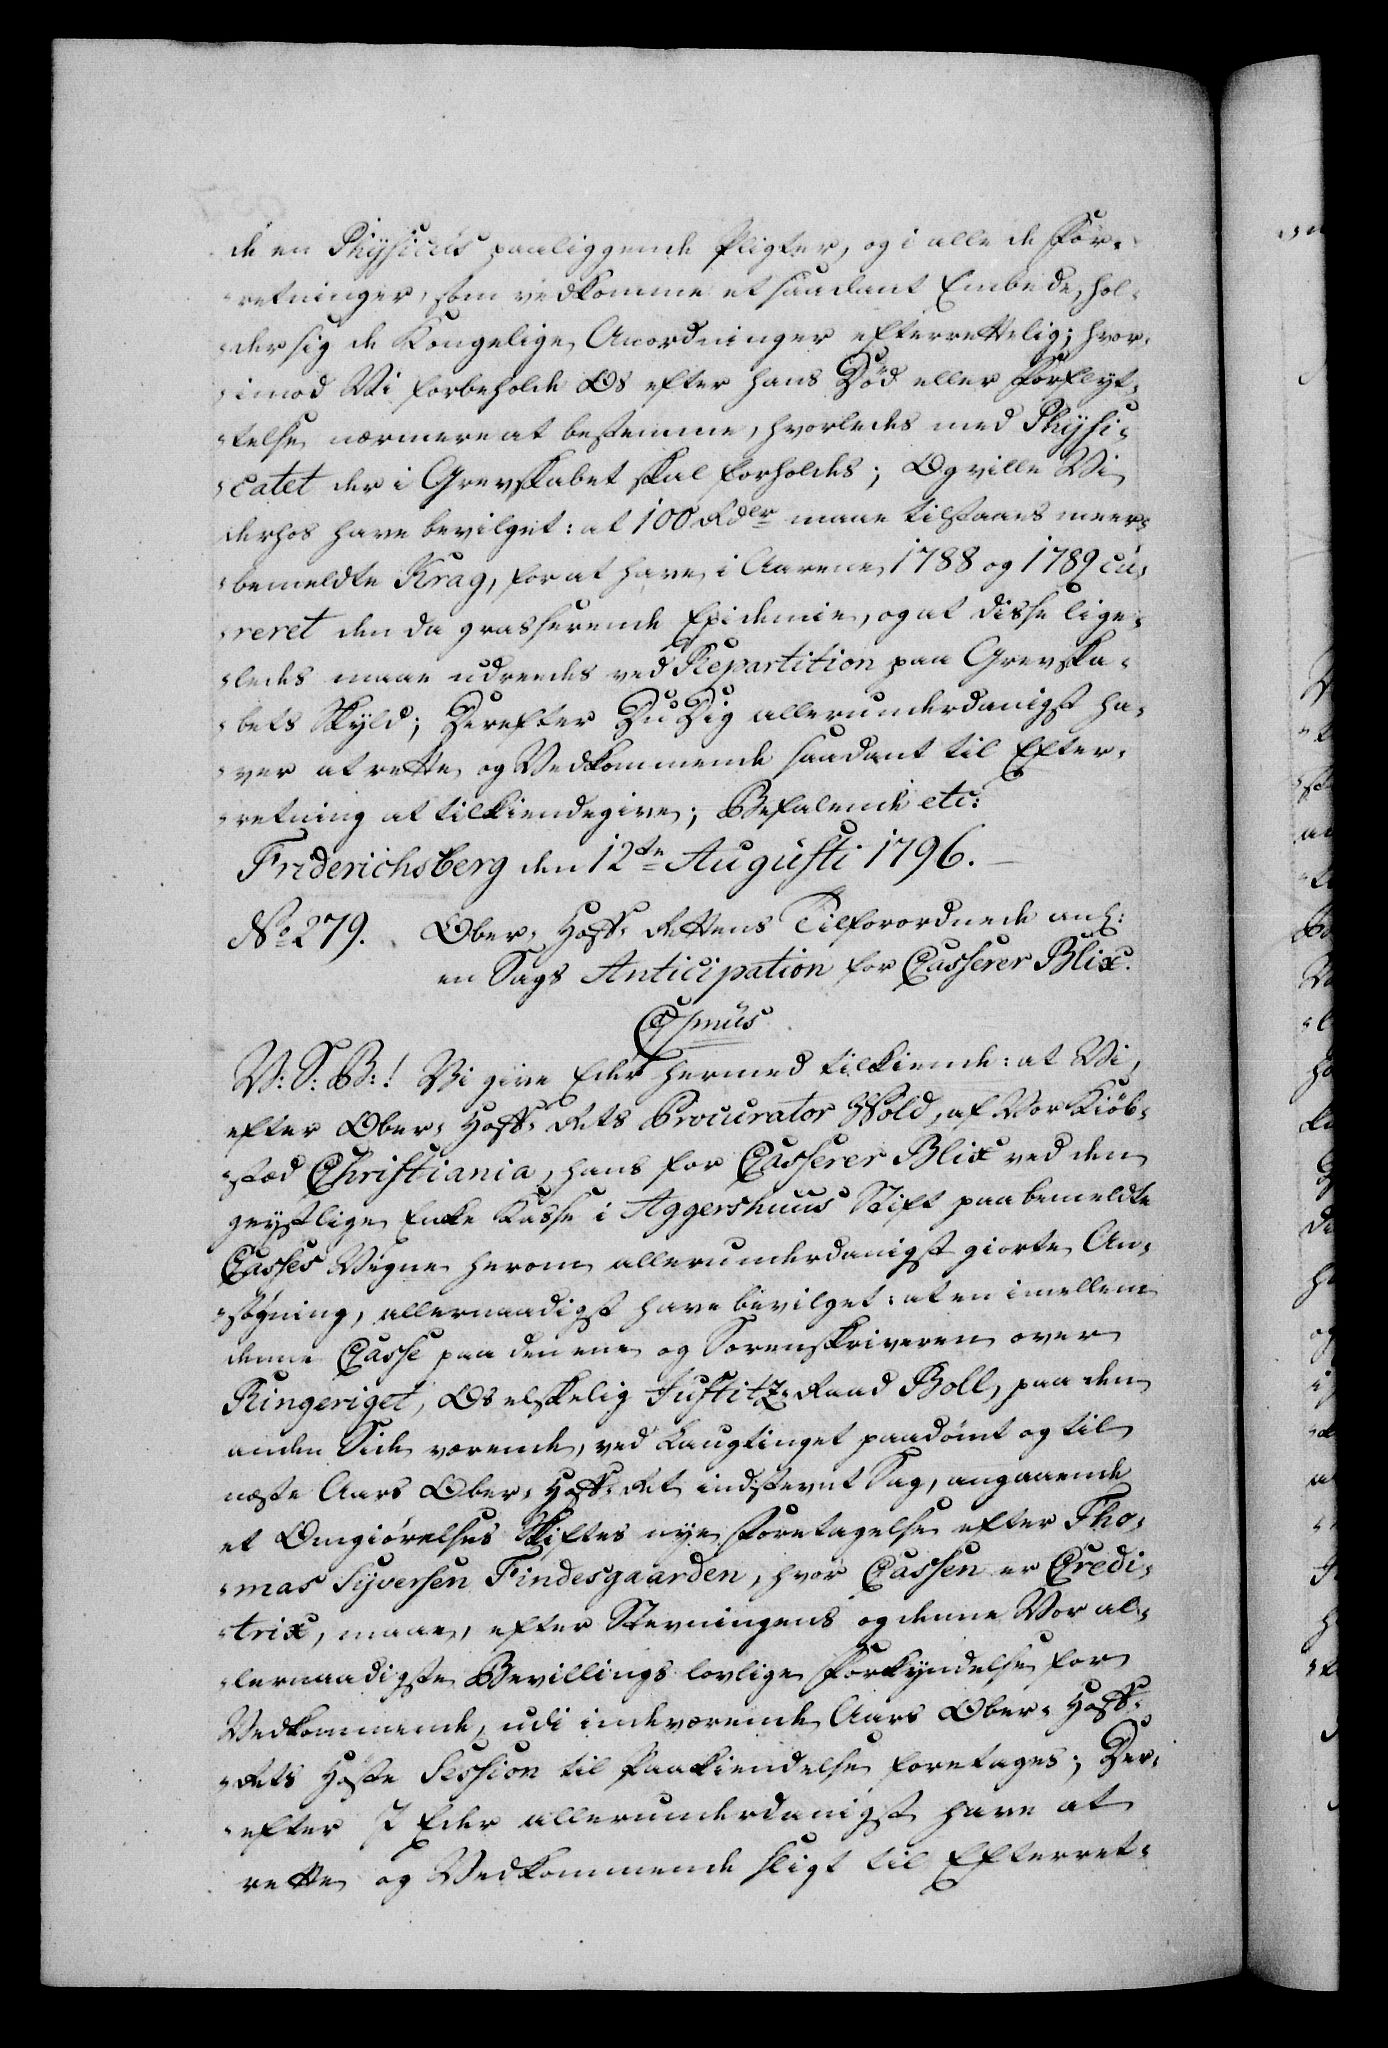 de en Physicus paaliggende Pligter, og i alle de For-
-retninger, som vedkomme et saadant Embede, hol-
-der sig de Kongelige Anordninger efterrettelig; hvor-
-imod Vi forbeholde Os efter hans Död eller Forflyt-
-telse nærmere at bestemme, hvorledes med Physi-
-catet der i Grevskabet skal forholdes; Og ville Vi
derhos have bevilget: at 100 Rdlr maae tilstaaes meer-
-bemeldte Krag, for at have i Aarene 1788 og 1789 cu-
-reret den da grasserende Epidemie, og at disse lige-
-ledes maae udreedes ved Repartition paa Grevska-
-bets Skyld; Derefter Du Dig allerunderdanigst ha-
-ver at rette og Vedkommende saadant til Efter-
-retning at tilkiendegive; Befalende etc:
Friderichsberg den 12te Augusti 1796.
No 279. Ober-Hoff-Rettens Tilforordnede anl:
en Sags Anticipation for Casserer Blix.
C7mus
V: S: B:! Vi give Eder hermed tilkiende: at Vi,
efter Ober-Hoff-Rets Procurator Wold, af Vor Kiöb-
-stæd Christiania, hans for Casserer Blix ved den
geystlige Enke Kasse i Aggershuus Stift paa bemeldte
Casses Vegne herom allerunderdanigst giorte An-
-søgning, allernaadigst have bevilget: at en imellem
denne Casse paa den ene og Sorenskriveren over
Ringeriget, Os elskelig Justitz-Raad Boll, paa den
anden Side værende, ved Laugtinget paadömt og til
næste Aars Ober-Hoff-Ret indstevnt Sag, angaaende
et Omgiörelses Skiftes nye Foretagelse efter Tho-
-mas Syversen Findesgaarden, hvor Cassen er Credi-
-trix, maae, efter Stevningens og denne Vor al-
-lernaadigste Bevillings lovlige Forkyndelse for
Vedkommende, udi indeværende Aars Ober-Hoff-
-Rets Høste Session til Paakiendelse foretages; Der-
-efter I Eder allerunderdanigst have at
rette og Vedkommende sligt til Efterret-